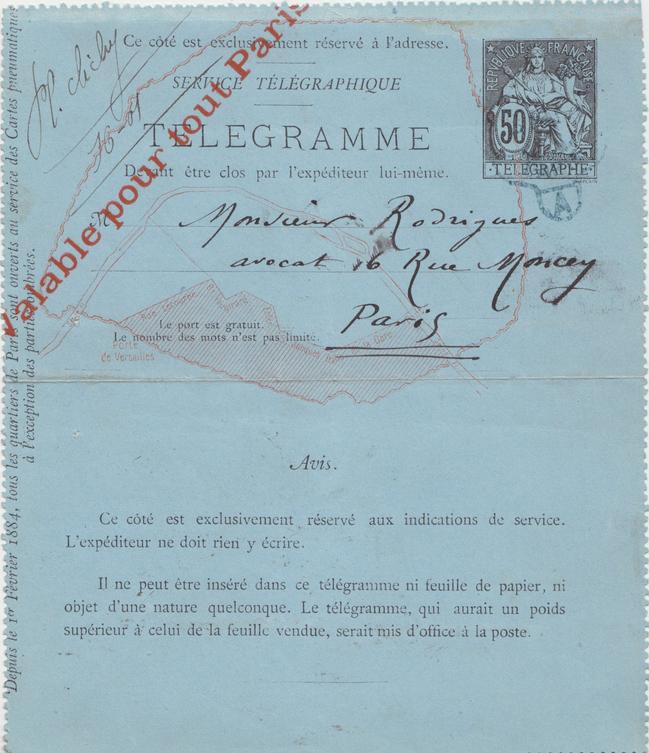 Pl. Clichy
Valable pour tout Paris
Ce côté est exclusivement réservé à l'adresse.
SERVICE TÉLÉGRAPHIQUE
TÉLÉGRAMME
Devant être clos par l'expéditeur lui-même.
RÉPUBLIQUE FRANÇAISE
50
TÉLÉGRAPHE
A
M Monsieur Rodrigues
avocat 16 Rue Moncey
Paris
Le port est gratuit.
Le nombre des mots n'est pas limité.
Porte
de Versailles
Depuis le 1er Février 1884, tous les quartiers de Paris sont ouverts au service des Cartes pneumatiques
à l'exception des parties ombrées.
Avis.
Ce côté est exclusivement réservé aux indications de service.
L'expéditeur ne doit rien y écrire.
Il ne peut être inséré dans ce télégramme ni feuille de papier, ni
objet d'une nature quelconque. Le télégramme, qui aurait un poids
supérieur à celui de la feuille vendue, serait mis d'office à la poste.